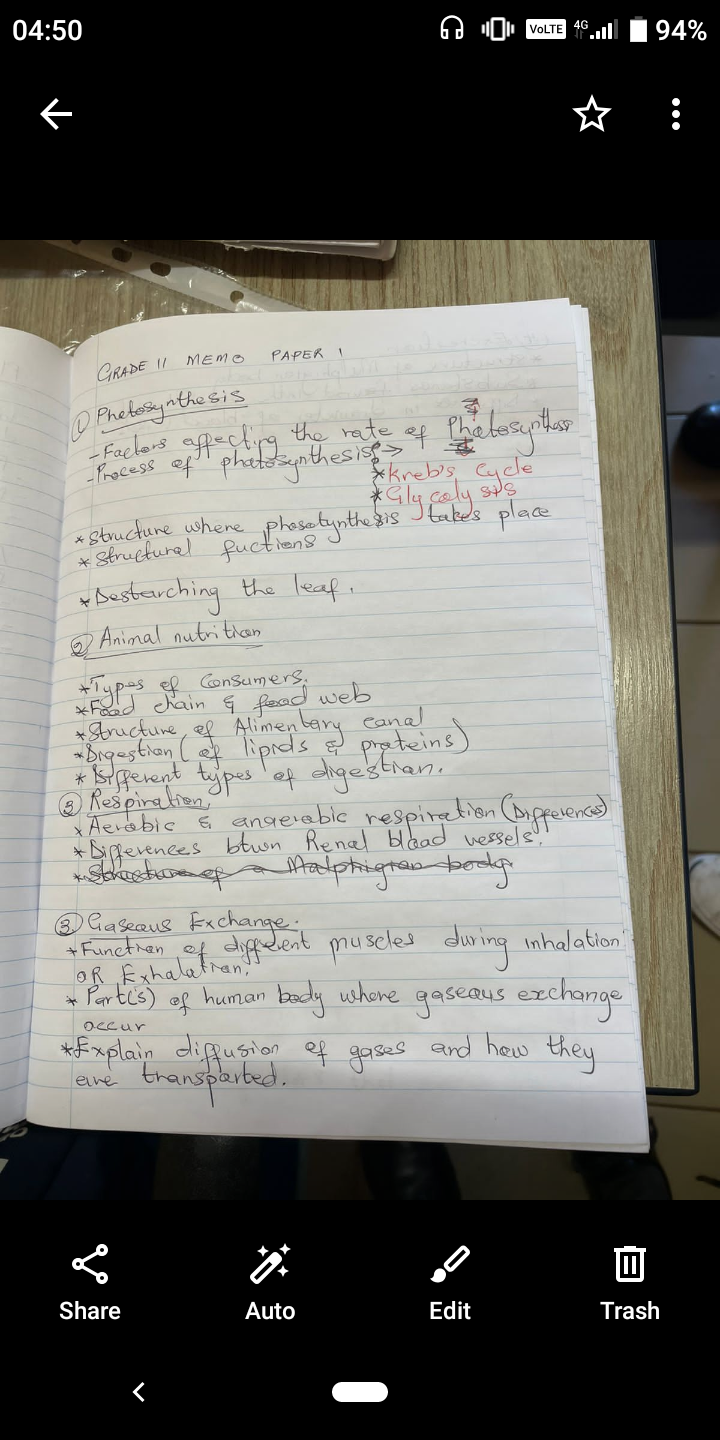 04:50
VoLTE
4G
94%
GRADE 11 MEMO PAPER 1
① Photosynthesis
- Factors affecting the rate of Phatosynthess
- Process of phatosynthesis →
* Kreb's Cycle
* Glycolysis
* Structure where phosotynthesis takes place
* Structural fuctions
* Destarching the leaf.
② Animal nutrition
* Types of Consumers.
* Food chain & food web
* Structure of Alimentary canal
* Digestion (of lipids & proteins)
* Different types of digestion.
③ Respiration,
* Aerobic & anaerobic respiration (Differences)
* Differences btwn Renal blood vessels.
* Structure of a Malphigian body.
③ Gaseous Exchange.
* Function of different muscles during inhalation
OR Exhalation.
* Part(s) of human body where gaseous exchange
occur
* Explain diffusion of gases and how they
are transported.
Share
Auto
Edit
Trash